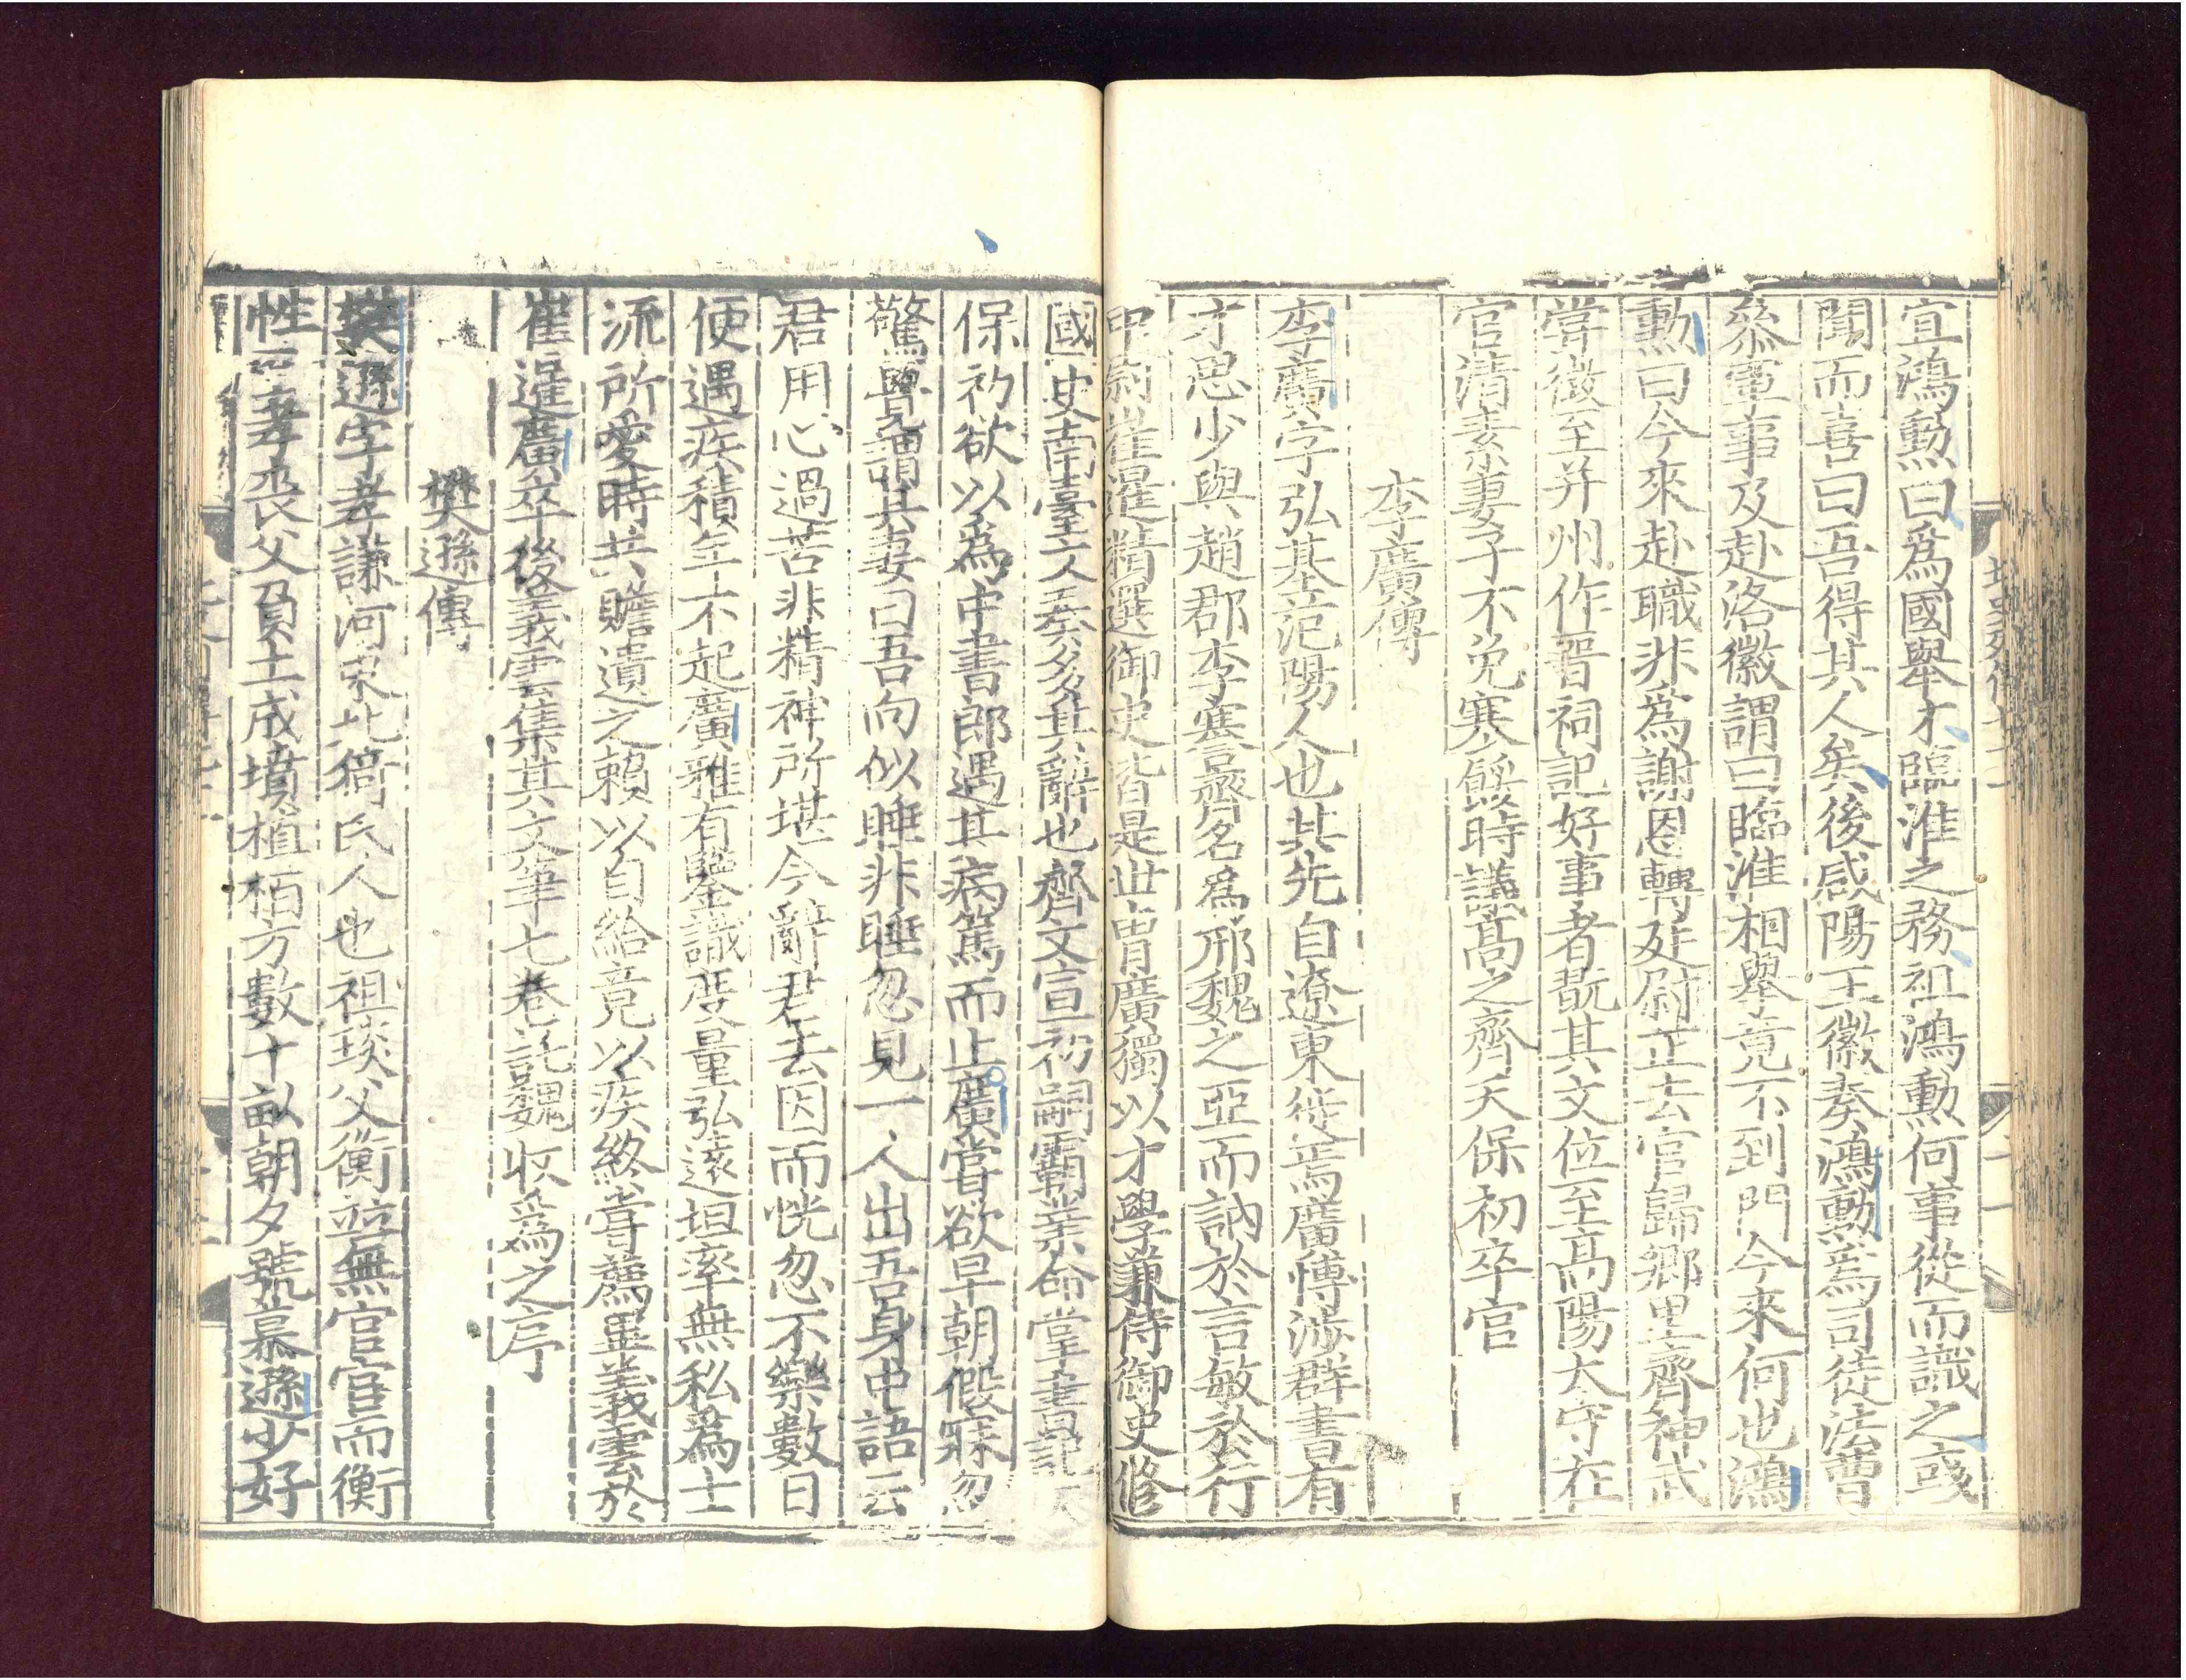 宜鴻勲曰爲國舉才臨淮之務祖鴻勲何事從而識之彧
聞而喜曰吾得其人矣後咸陽王徽奏鴻勲爲司徒法曹
叅軍事及赴洛徽謂曰臨淮相舉竟不到門今來何也鴻
勲曰今來赴職非爲謝恩轉廷尉正去官歸鄉里齊神武
嘗徵至并州作晋祠記好事者翫其文位至高陽太守在
官清素妻子不免寒餒時議高之齊天保初卒官
李廣傳
李廣字弘基范陽人也其先自遼東徙焉廣博涉群書有
才思少與趙郡李謇齊名爲邢魏之亞而訥於言敏於行
中尉崔暹精選御史皆是世胄廣獨以才學兼侍御史修
國史南臺文奏多其辭也齊文宣初嗣霸業命掌書記天
保初欲以爲中書郎遇其病篤而止廣嘗欲早朝假寐忽
驚覺謂其妻曰吾向似睡非睡忽見一人出吾身中語云
君用心過苦非精神所堪今辭君去因而恍忽不樂數日
便遇疾積年不起廣雅有鑒識度量弘遠坦率無私爲士
流所愛時共贍遺之賴以自給竟以疾終嘗薦畢義雲於
崔暹廣卒後義雲集其文筆七卷託魏收爲之序
樊遜傳
樊遜字孝謙河東北猗氏人也祖琰父衡並無官宦而衡
性至孝喪父負土成墳植栢方數十畝朝夕號慕遜少好